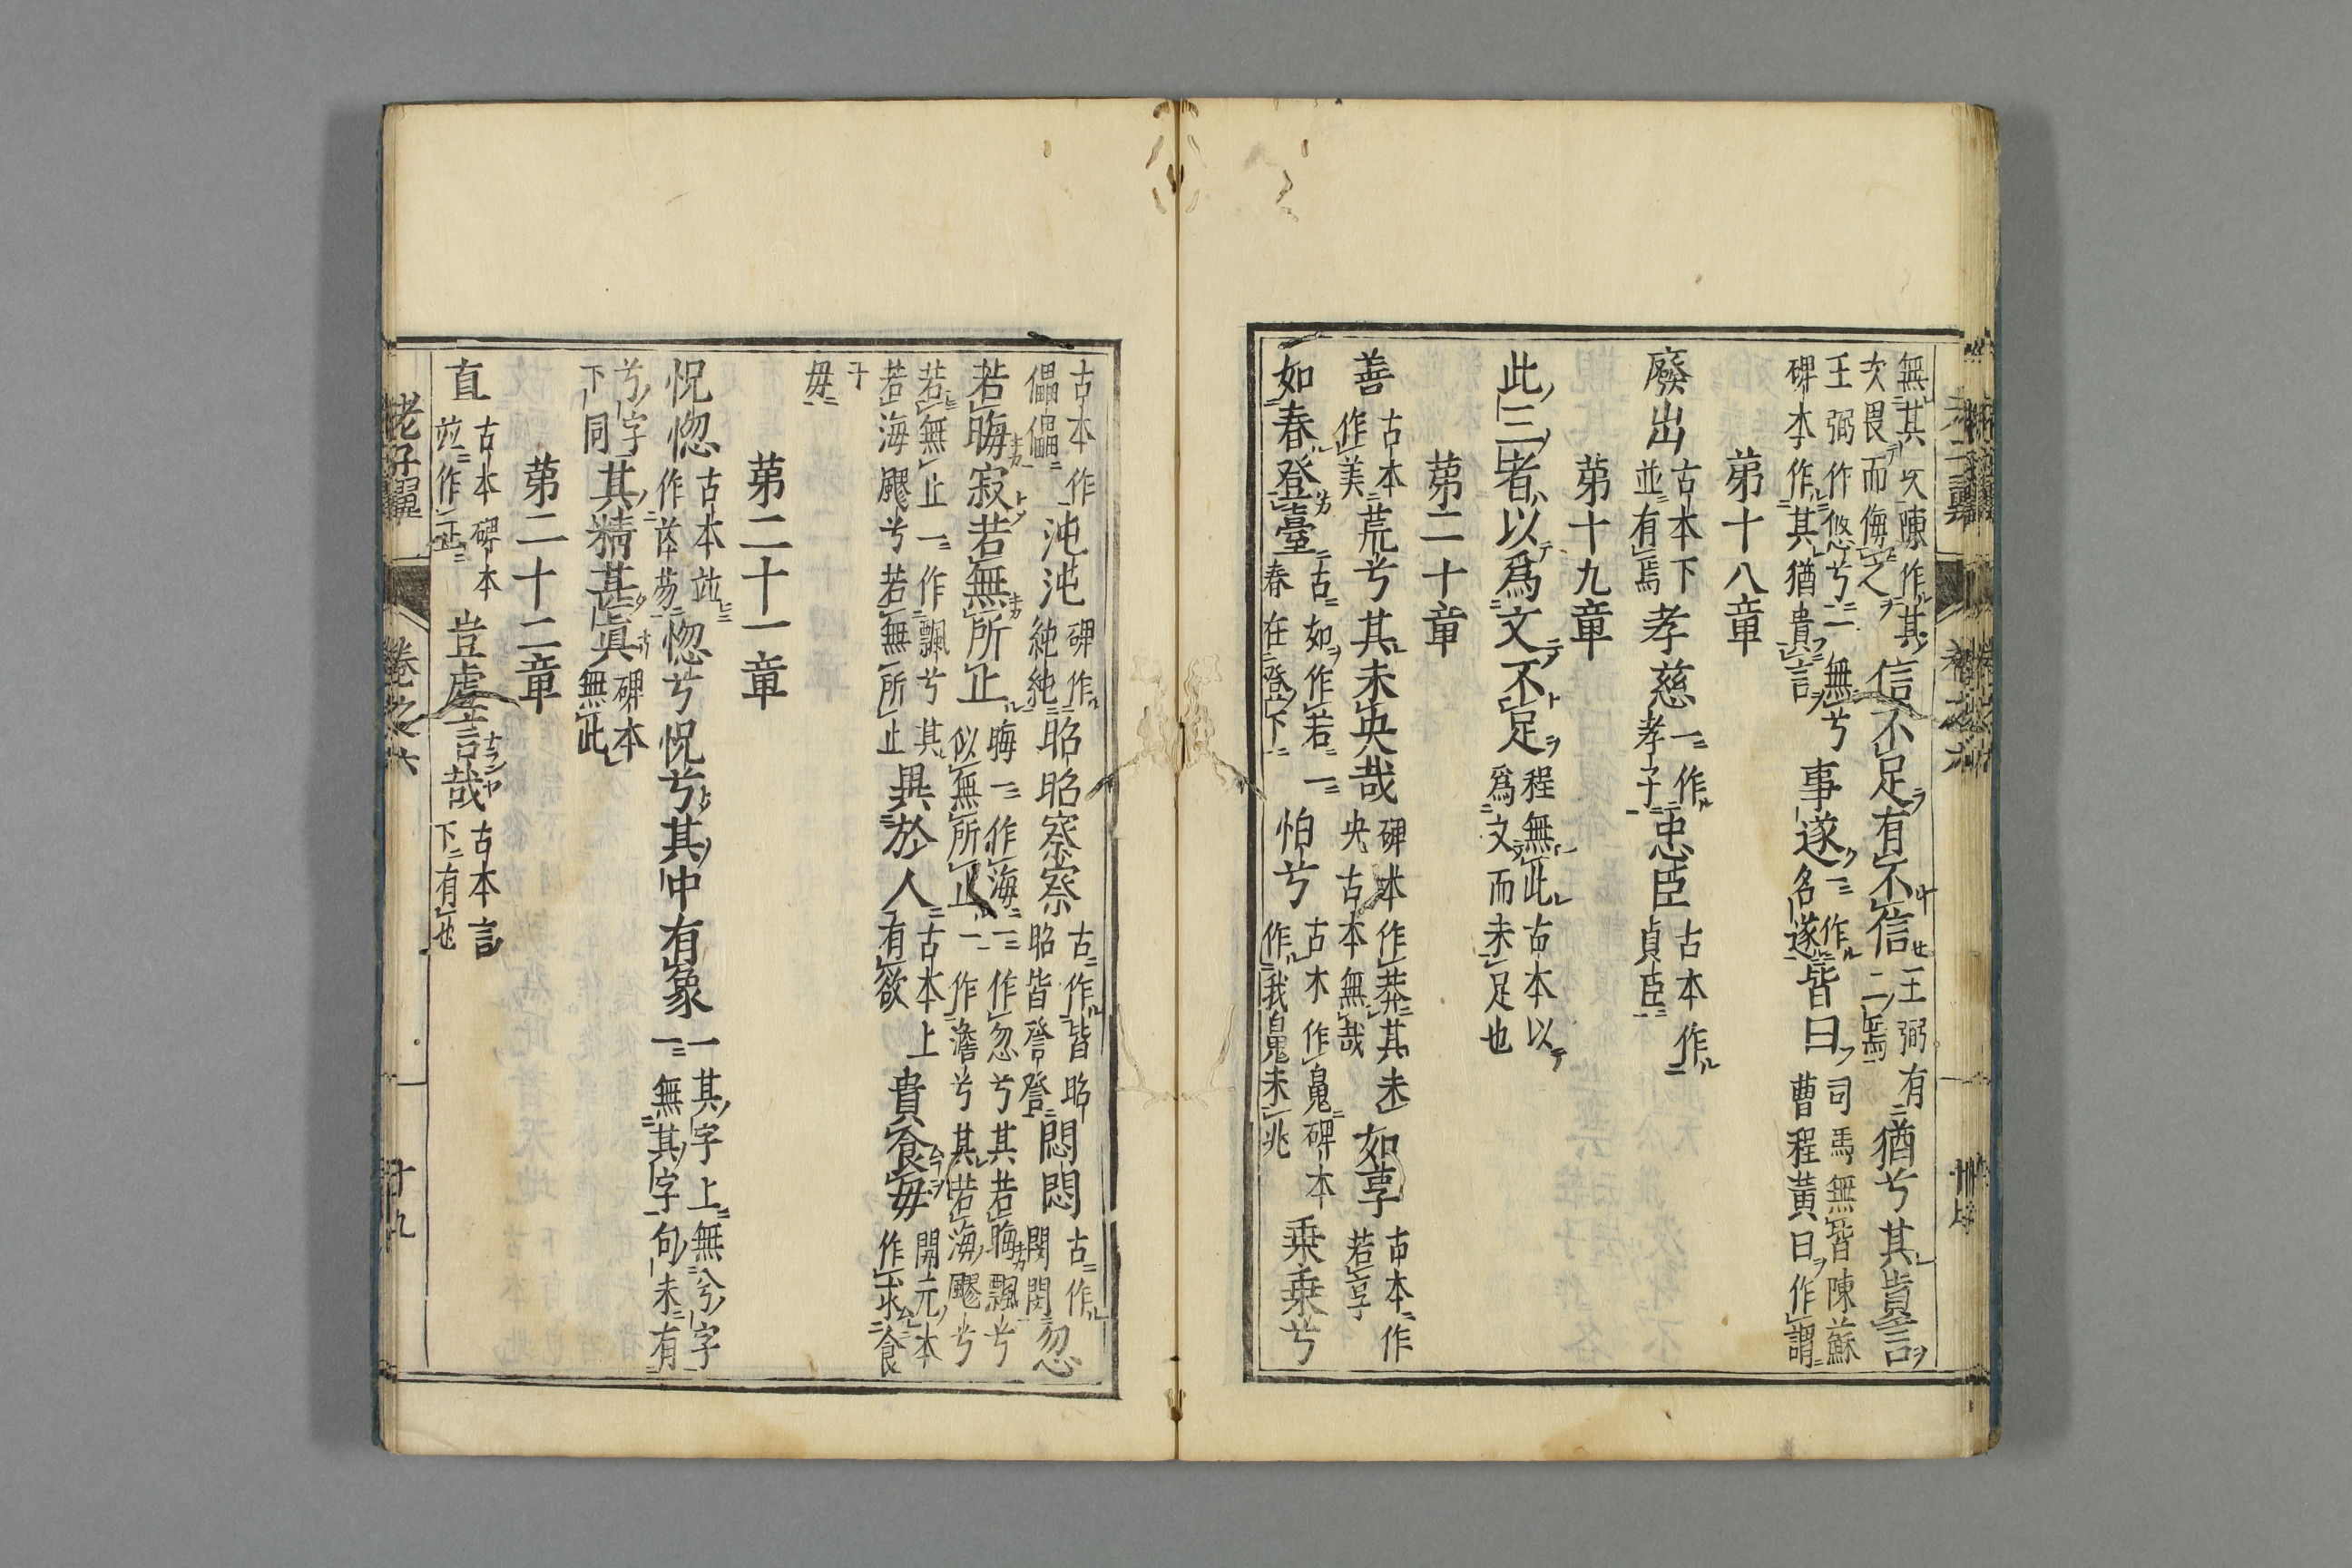 無其次陳作其信不足有不信王弼有猶兮其貴言
次畏而侮之二焉
王弼作悠兮一無兮事遂一作皆曰司馬無皆陳蘇
碑本作其猶貴言名遂曹程黃曰作謂
第十八章
廢出古本下孝慈一作忠臣古本作
並有焉孝子貞臣
第十九章
此三者以爲文不足程無此古本以
爲文而未足也
第二十章
善古本荒兮其未央哉碑本作莽其未如享古本作
作美央古本無哉若享
如春登臺古如作若一怕兮古本作碑本乗乗兮
春在登下作我未兆
古本作沌沌碑作昭昭察察古作皆昭悶悶古作忽
儡儡純純昭皆詧詧閔閔
若晦寂若無所止晦一作海一作忽兮其若晦飄兮
似無所止一作澹兮其若海飂兮
若無止一作飄兮其異於人古本上貴食毋開元本
若海飂兮若無所止有欲作求食
于
毋
第二十一章
怳惚古本並惚兮怳兮其中有象一其字上無兮字
作芒芴一無其字句未有
兮字其精甚眞碑本
下同無此
第二十二章
直古本碑本豈虛言哉古本言
並作正下有也
老子翼 卷之六 十九